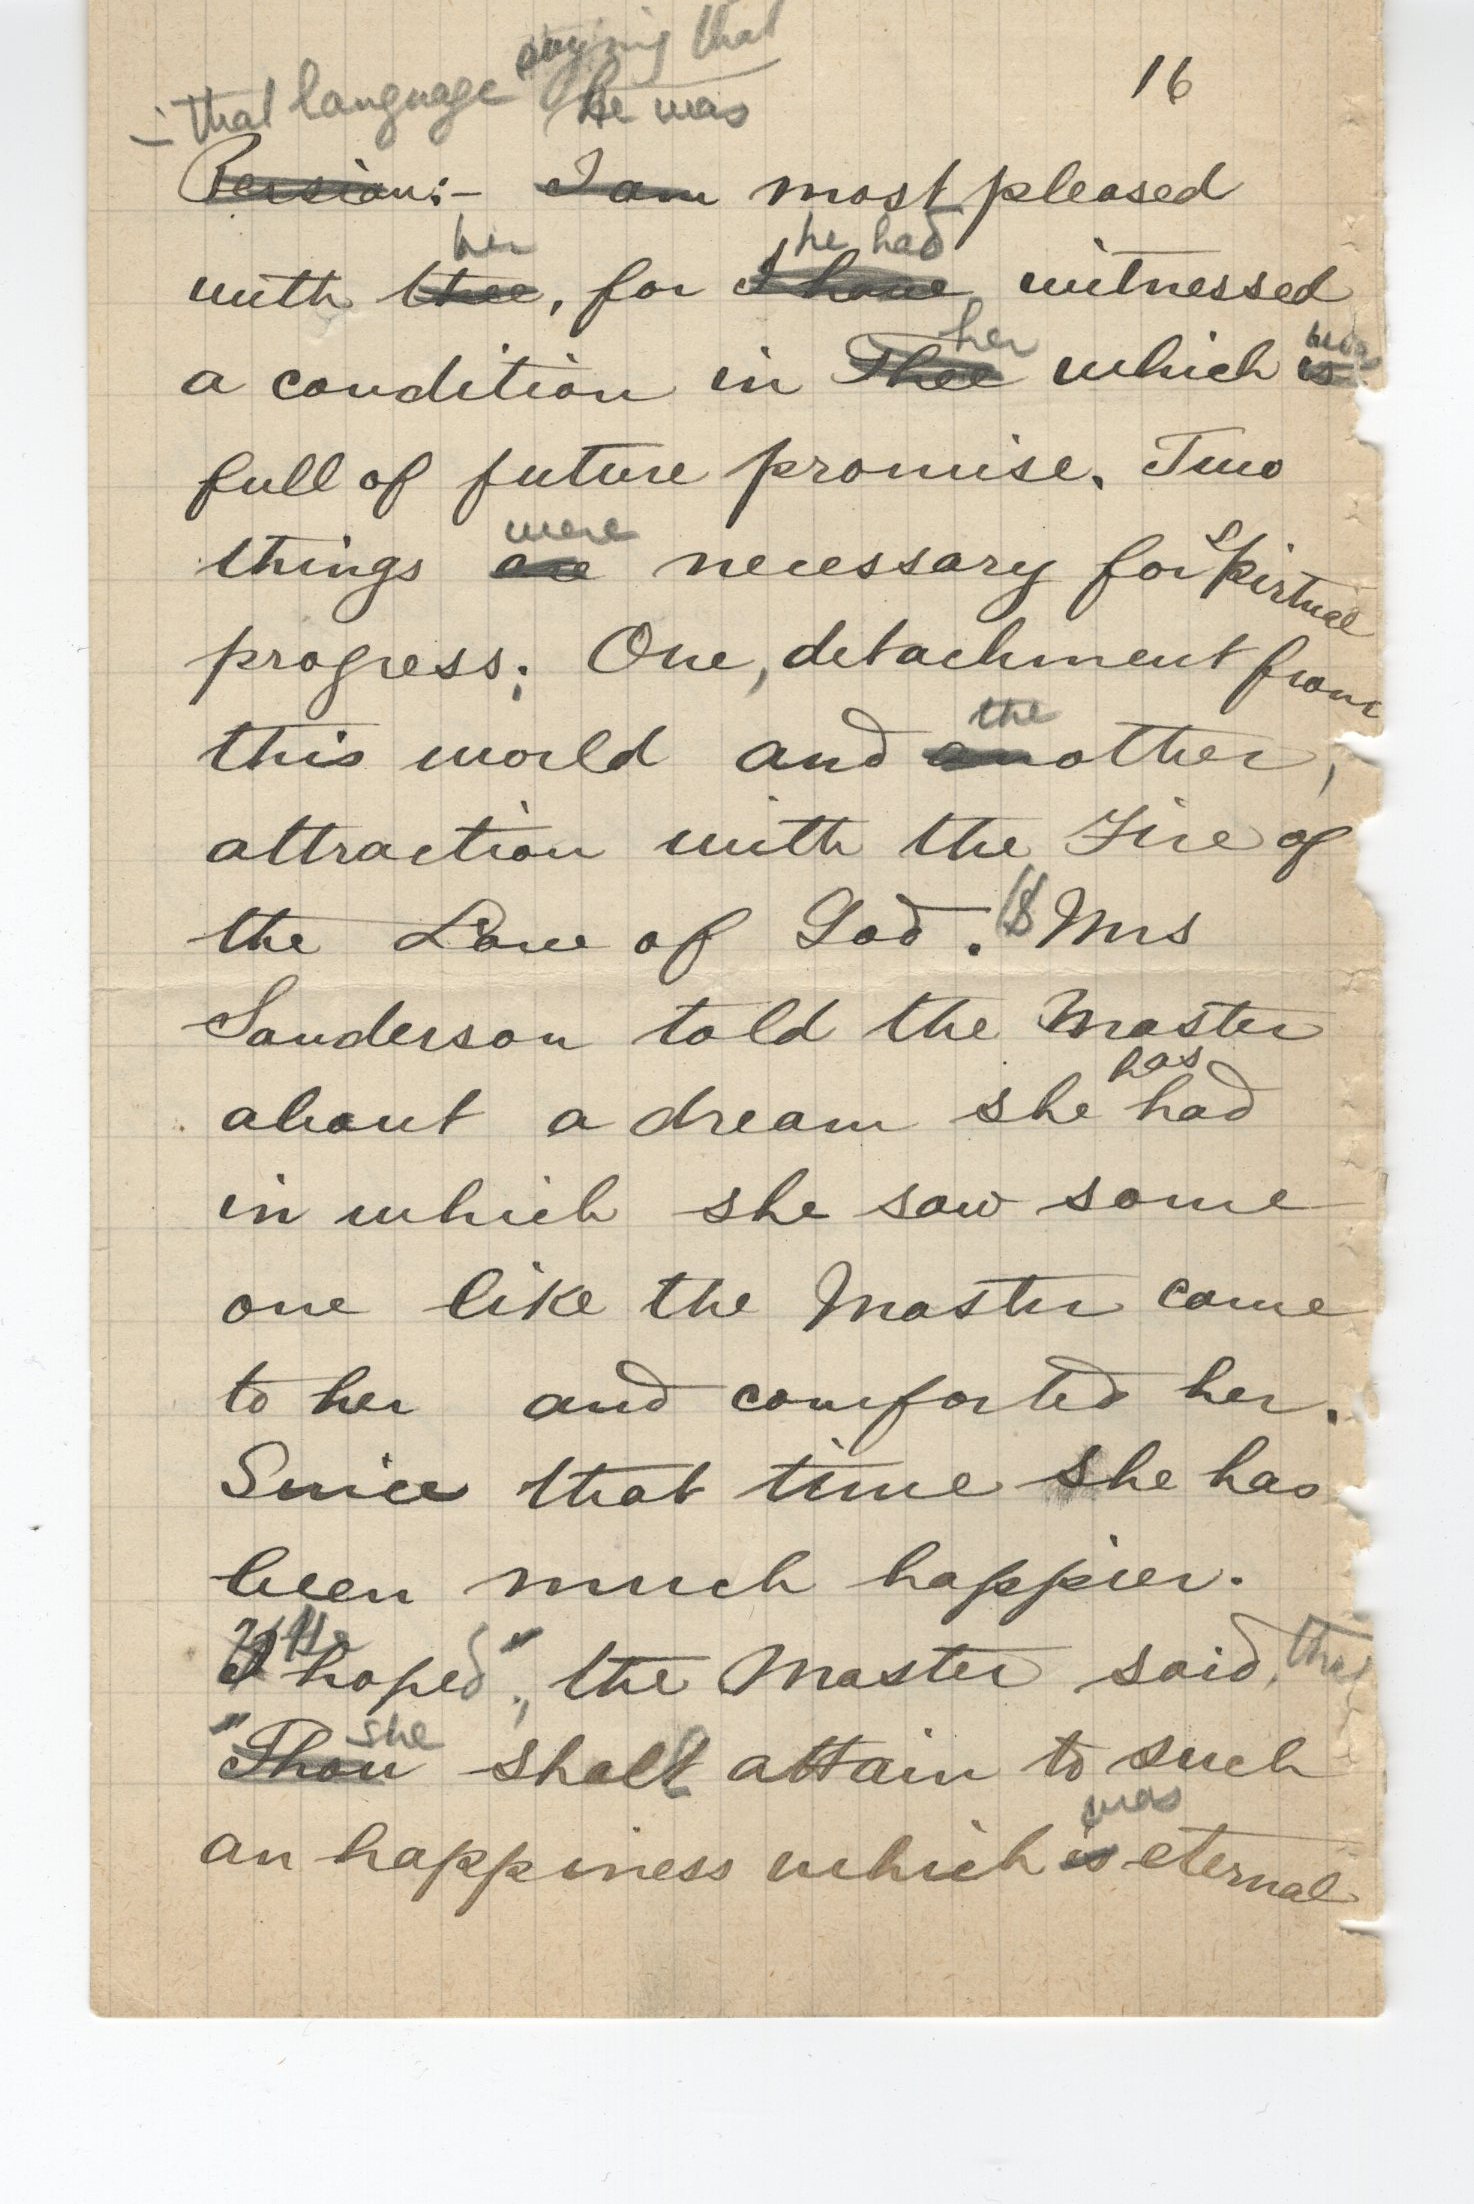 saying that
16
that language he was
Persian:- I am most pleased
her he had
with thee, for I have witnessed
her was
a condition in Thee which is
full of future promise. Two
were
things are necessary for Spirtual
progress; One, detachment from
the
this world and another,
attraction with the Fire of
the Love of God. Mrs
Sanderson told the Master
has
about a dream she had
in which she saw some
one like the Master came
to her and comforted her.
Since that time she has
been much happier.
He
I hoped", the Master said, that
she
"Thou shalt attain to such
was
an happiness which is eternal